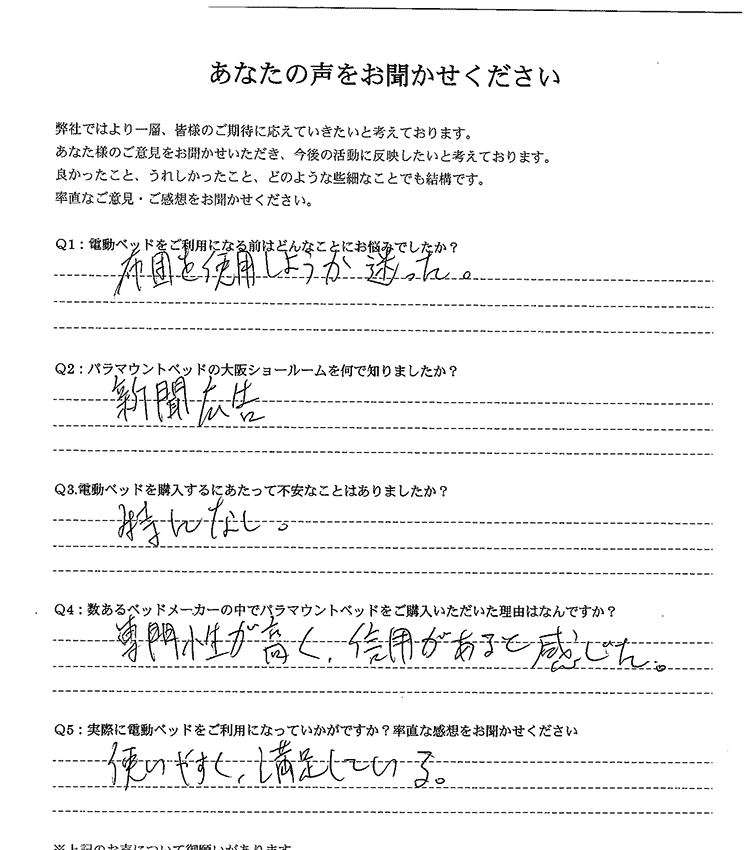 あなたの声をお聞かせください
弊社ではより一層、皆様のご期待に応えていきたいと考えております。
あなた様のご意見をお聞かせいただき、今後の活動に反映したいと考えております。
良かったこと、うれしかったこと、どのような些細なことでも結構です。
率直なご意見・ご感想をお聞かせください。
Q1：電動ベッドをご利用になる前はどんなことにお悩みでしたか？
布団を使用しようか迷った。
Q2：パラマウントベッドの大阪ショールームを何で知りましたか？
新聞広告
Q3.電動ベッドを購入するにあたって不安なことはありましたか？
特になし。
Q4：数あるベッドメーカーの中でパラマウントベッドをご購入いただいた理由はなんですか？
専門性が高く、信用があると感じた。
Q5：実際に電動ベッドをご利用になっていかがですか？率直な感想をお聞かせください
使いやすく、満足している。
※上記のお声について御願いがあります